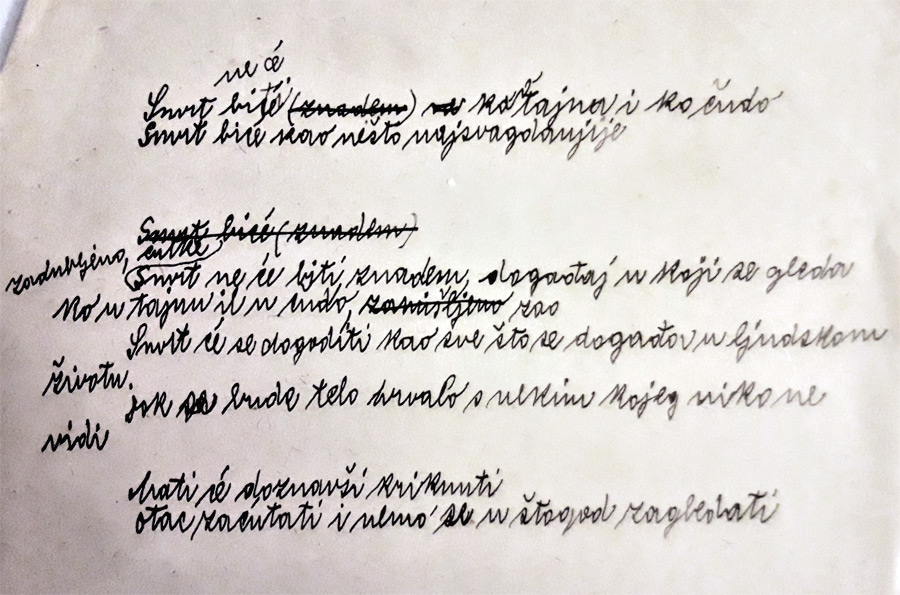 ne će
Smrt biti (znadem) ko tajna i ko čudo
Smrt biće kao nešto najsvagdanjije
Smrt biće (znadem)
zadubljeno, ćutke
Smrt ne će biti, znadem, događaj u koji se gleda
ko u tajnu il u čudo, zamišljeno zao
Smrt će se dogoditi kao sve što se događa u ljudskom
životu.
dok bude telo hrvalo s nekim kojeg niko ne
vidi
Mati će doznavši kriknuti
otac zaćutati i nemo se u štogod zagledati